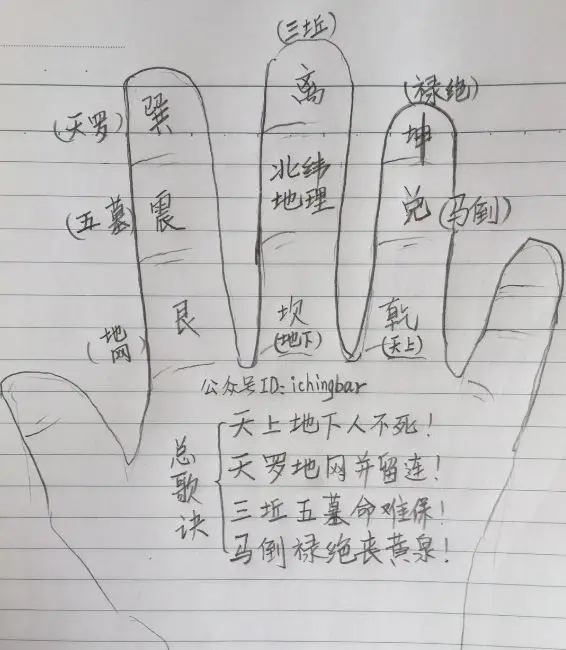 (三坵)
离
(禄绝)
坤
(天罗) 巽
北纬
地理
(五墓) 震
兑 (马倒)
(地网) 艮
坎
(地下)
乾
(天上)
公众号ID: ichingbar
总歌诀
天上地下人不死!
天罗地网并留连!
三坵五墓命难保!
马倒禄绝丧黄泉!